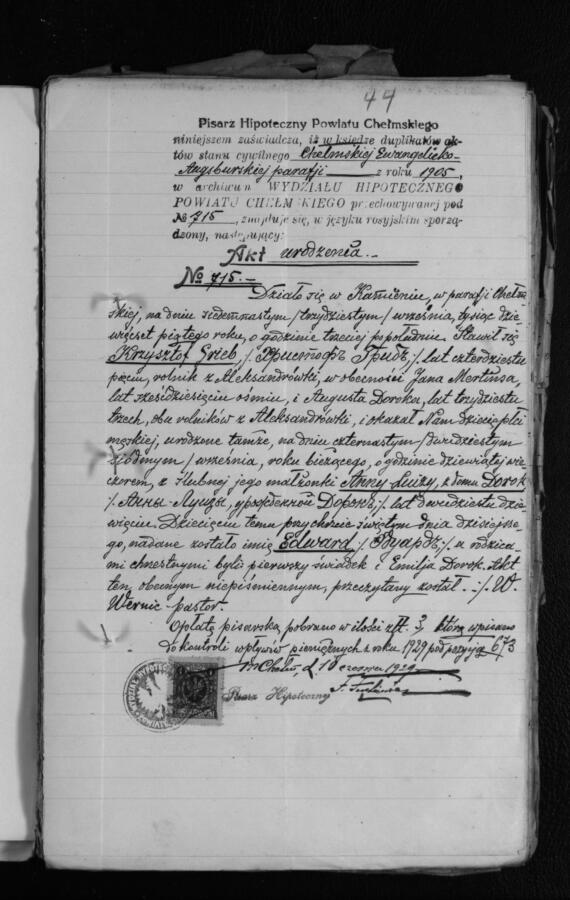 44
Pisarz Hipoteczny Powiatu Chełmskiego
niniejszem zaświadcza, iż w księdze duplikatów ak-
tów stanu cywilnego Chełmskiej Ewangelicko-
Augsburskiej parafji z roku 1905,
w archiwum WYDZIAŁU HIPOTECZNEGO
POWIATU CHEŁMSKIEGO przechowywanej pod
№ 715, znajduje się, w języku rosyjskim sporzą-
dzony, następujący:
Akt urodzenia.
No 715.
Działo się w Kamieniu, w parafji Chełm-
skiej, na dniu siedemnastym /trzydziestym/ września, tysiąc dzie-
więćset piątego roku, o godzinie trzeciej popołudniu. Stawił się
Krzysztof Grieb /: Фристофъ Грибъ :/ lat czterdziestu
pięciu, rolnik z Aleksandrówki, w obecności Jana Mertinsa,
lat sześćdziesięciu ośmiu, i Augusta Doroka, lat trzydziestu
trzech, obu rolników z Aleksandrówki, i okazał Nam dziecię płci
męskiej, urodzone tamże, na dniu czternastym /dwudziestym
siódmym/ września, roku bieżącego, o godzinie dziewiątej wie-
czorem, z ślubnej jego małżonki Anny-Luizy, z domu Dorok
/: Анны-Луизы, урожденной Дорокъ :/ lat dwudziestu dzie-
więciu. Dziecięciu temu przy chrzcie świętym dnia dzisiejsze-
go, nadane zostało imię Edward /: Эдуардъ :/ a rodzica-
mi chrzestnymi byli pierwszy świadek i Emilja Dorok. Akt
ten, obecnym niepiśmiennym, przeczytany został. :/ W.
Wernic pastor.
Opłatę pisarską pobrano w ilości złt. 3, którą wpisano
do kontroli wpływów pieniężnych z roku 1929 pod pozycją 673
Chełm, d. 10 czerwca 1929
Pisarz Hipoteczny